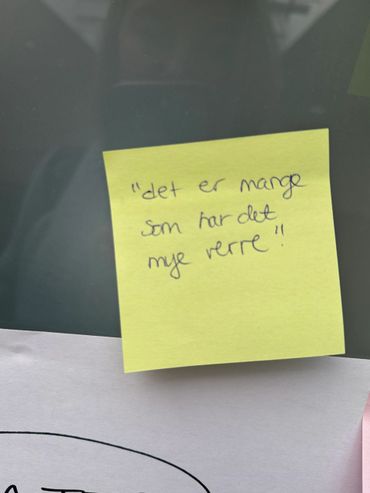 "det er mange
som har det
mye verre"!